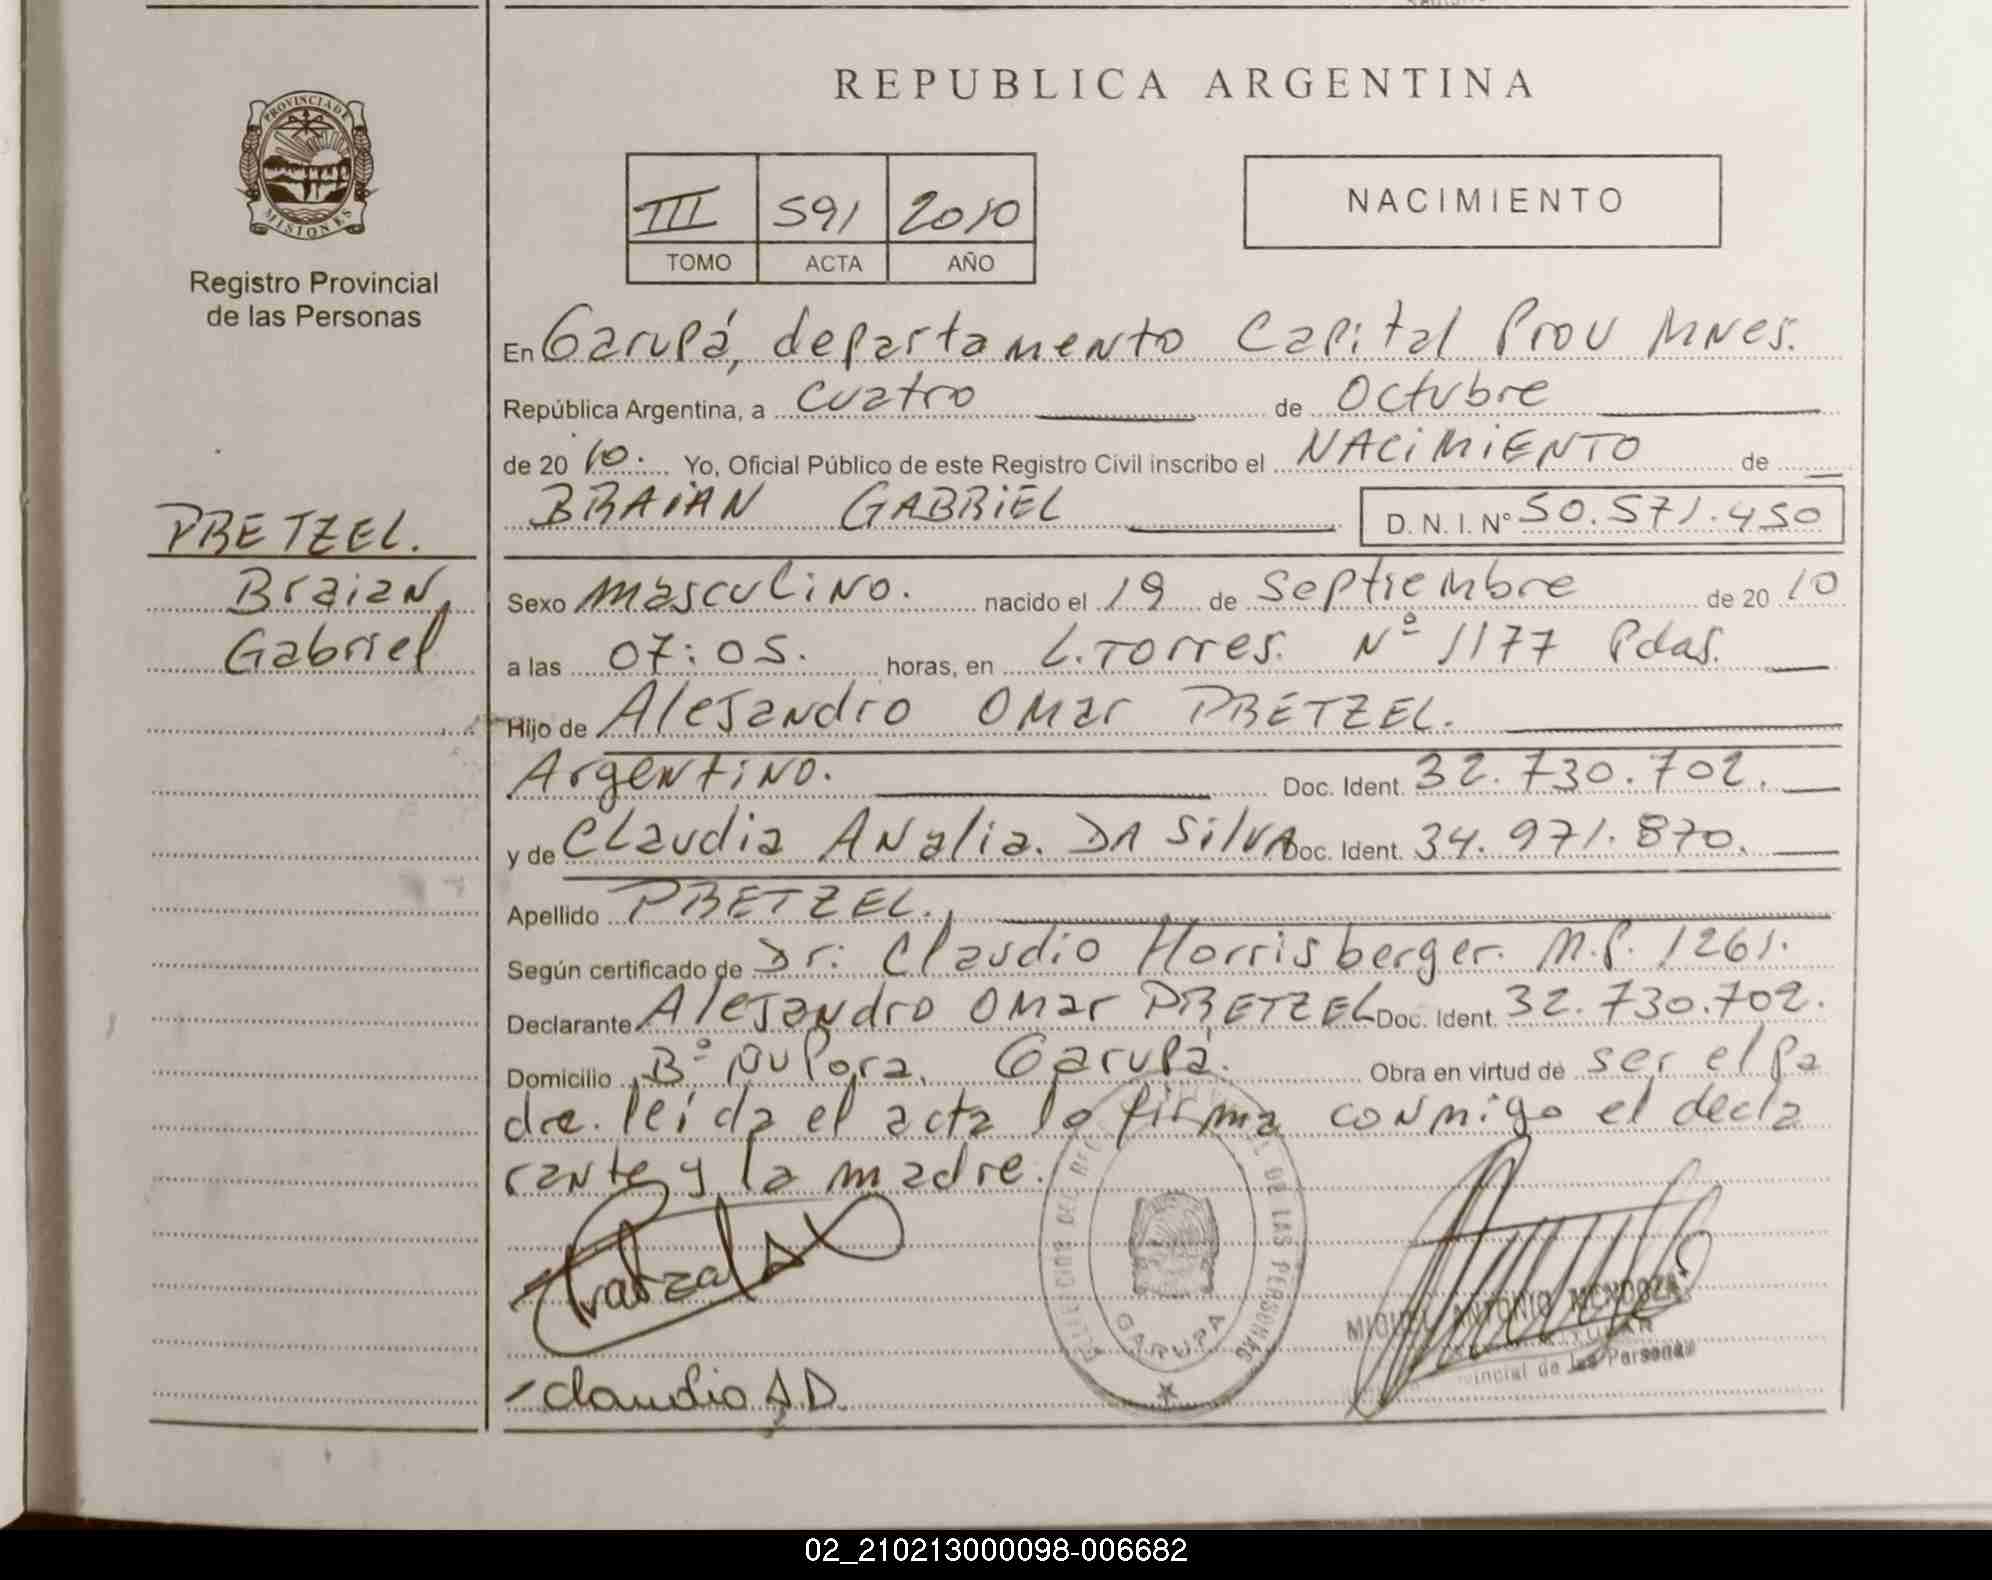 REPUBLICA ARGENTINA
PROVINCIA DE MISIONES
Registro Provincial
de las Personas
III 591 2010
TOMO ACTA AÑO
NACIMIENTO
En Garupá, departamento Capital Prov Mnes.
República Argentina, a cuatro de Octubre
de 2010. Yo, Oficial Público de este Registro Civil inscribo el NACIMIENTO de
BRAIAN GABRIEL D. N. I. Nº 50.571.450
PRETZEL.
Braian
Gabriel
Sexo masculino. nacido el 19 de septiembre de 2010
a las 07:05. horas, en L. Torres. Nº 1177 Pdas.
Hijo de Alejandro Omar PRETZEL.
Argentino. Doc. Ident. 32.730.702.
y de Claudia Analia. DA SilvA Doc. Ident. 34.971.870.
Apellido PRETZEL.
Según certificado de Dr: Claudio Horrisberger. M.P. 1261.
Declarante Alejandro Omar PRETZEL Doc. Ident. 32.730.702.
Domicilio Bº Ñu Pora. Garupá. Obra en virtud de ser el pa
dre. leída el acta la firma conmigo el decla
rante y la madre.
DE LAS PERSONAS
GARUPA
MIGUEL ANTONIO MENDOZA
de las Personas
Claudia A.D.
02_210213000098-006682